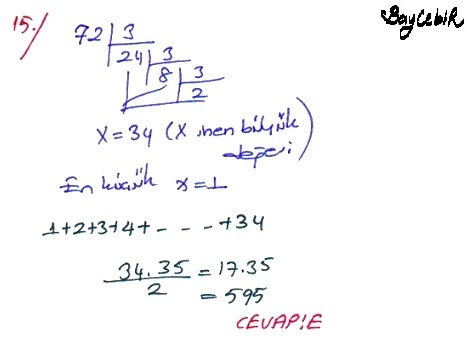 BayCebiR
15./
72 | 3
24 | 3
8 | 3
2
X = 34 (X in en büyük
değeri)
En küçük x = 1
1+2+3+4+ - - - +34
34.35 / 2 = 17.35
= 595
CEVAP:E